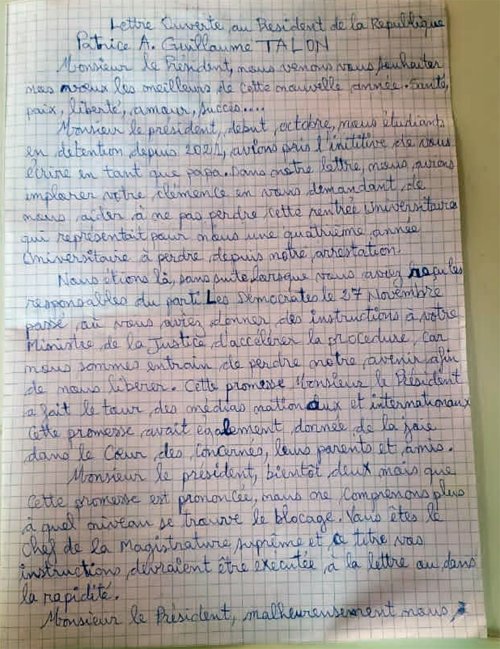 Lettre Ouverte, au Président de la République
Patrice A. Guillaume TALON
Monsieur le Président, nous venons vous souhaiter
nos vœux les meilleurs de cette nouvelle année. Santé,
paix, liberté, amour, succès....
Monsieur le président, début, octobre, nous étudiants
en détention depuis 2021, avions pris l'initiative de vous
écrire en tant que papa. Dans notre lettre, nous avions
implorer votre clémence en vous demandant, de
nous aider à ne pas perdre cette rentrée universitaire
qui représentait pour nous une quatrième année
Universitaire à perdre depuis notre arrestation
Nous étions là, sans suite, lorsque vous aviez reçu les
responsables du parti Les Démocrates le 27 Novembre
passé, où vous aviez donner, des instructions à votre
Ministre de la Justice d'accélérer la procédure, car
nous sommes entrain de perdre notre avenir afin
de nous libérer. Cette promesse Monsieur le Président
a fait le tour des médias nationaux et internationaux
Cette promesse, avait également, donnée de la joie
dans le Cœur des, concernés, leurs parents et amis.
Monsieur le président, bientôt deux mois que
cette promesse est prononcée, nous ne comprenons plus
à quel niveau se trouve le blocage. Vous êtes le
chef de la Magistrature suprême et à ce titre vos
instructions, devraient être exécutée, à la lettre ou dans
la rapidité.
Monsieur le Président, malheureusement nous